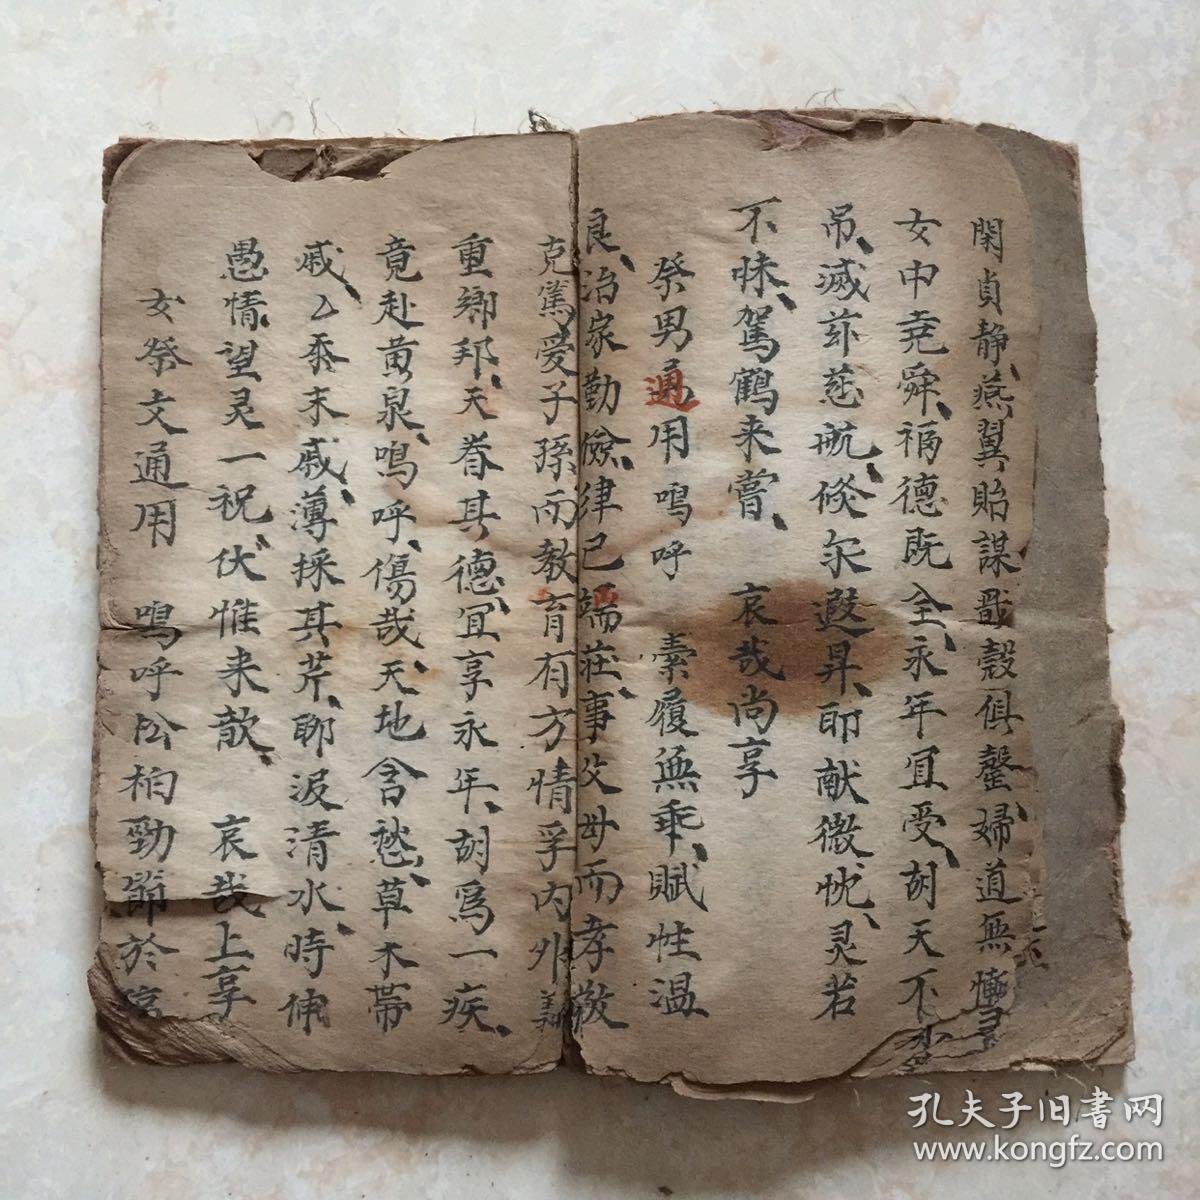 閑貞静、燕翼貽謀戬穀俱罄、婦道無慚
女中尭舜、福德既全、永年宜受、胡天不
吊、滅茲慈航、倐尔遐昇、聊献微忱、灵若
不昧、駕鶴来嘗、哀哉尚享
祭男通用 鳴呼 素履無乖、賦性温
良、治家勤儉、律己端莊、事父母而孝敬
克篤愛子孫而教育有方情孚内外義
重鄉邦、天眷其德、宜享永年、胡爲一疾、
竟赴黄泉、鳴呼、傷哉、天地含愁、草木帶
戚、厶忝末戚、薄採其芹、聊汲清水、時伸
愚情、望灵一祝、伏惟来歆、哀哉上享
女祭文通用 鳴呼松柏勁節於
孔夫子旧書网
www.kongfz.com